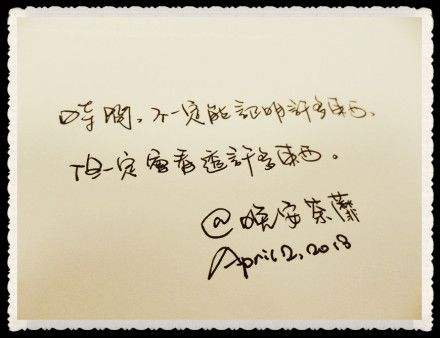 時間，不一定能証明許多東西，
但一定會看透許多東西。
@晚安紫薇
April 2, 2018